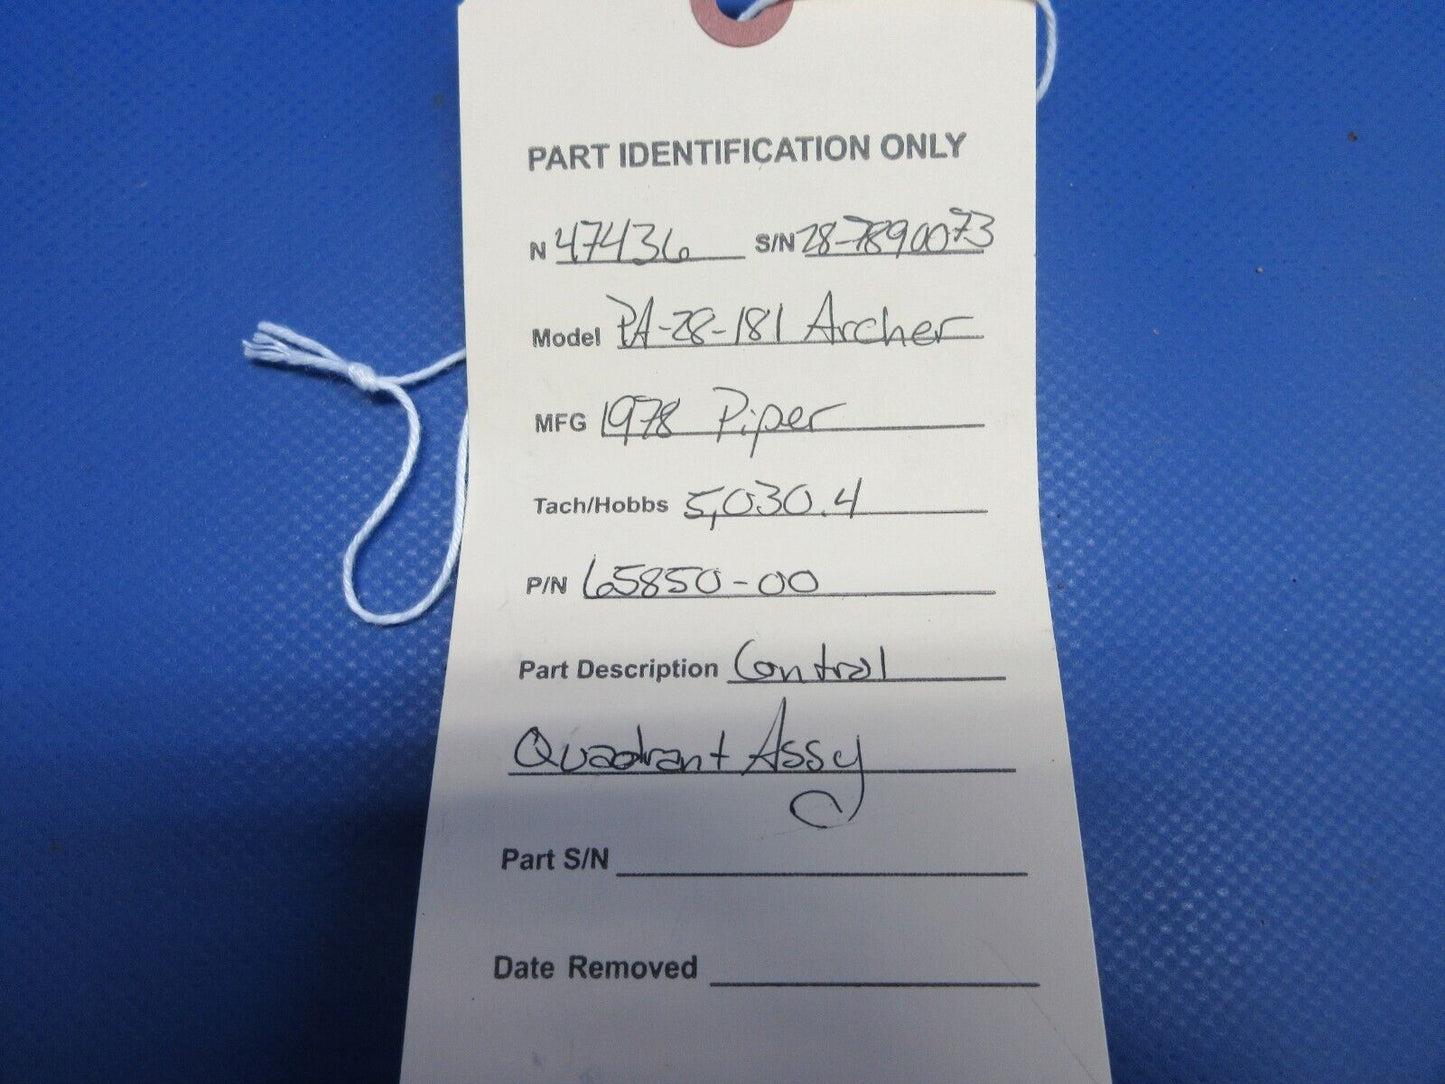 PART IDENTIFICATION ONLY
N 47436 S/N 28-7890073
Model PA-28-181 Archer
MFG 1978 Piper
Tach/Hobbs 5,030.4
P/N 65850-00
Part Description Control
Quadrant Assy
Part S/N
Date Removed